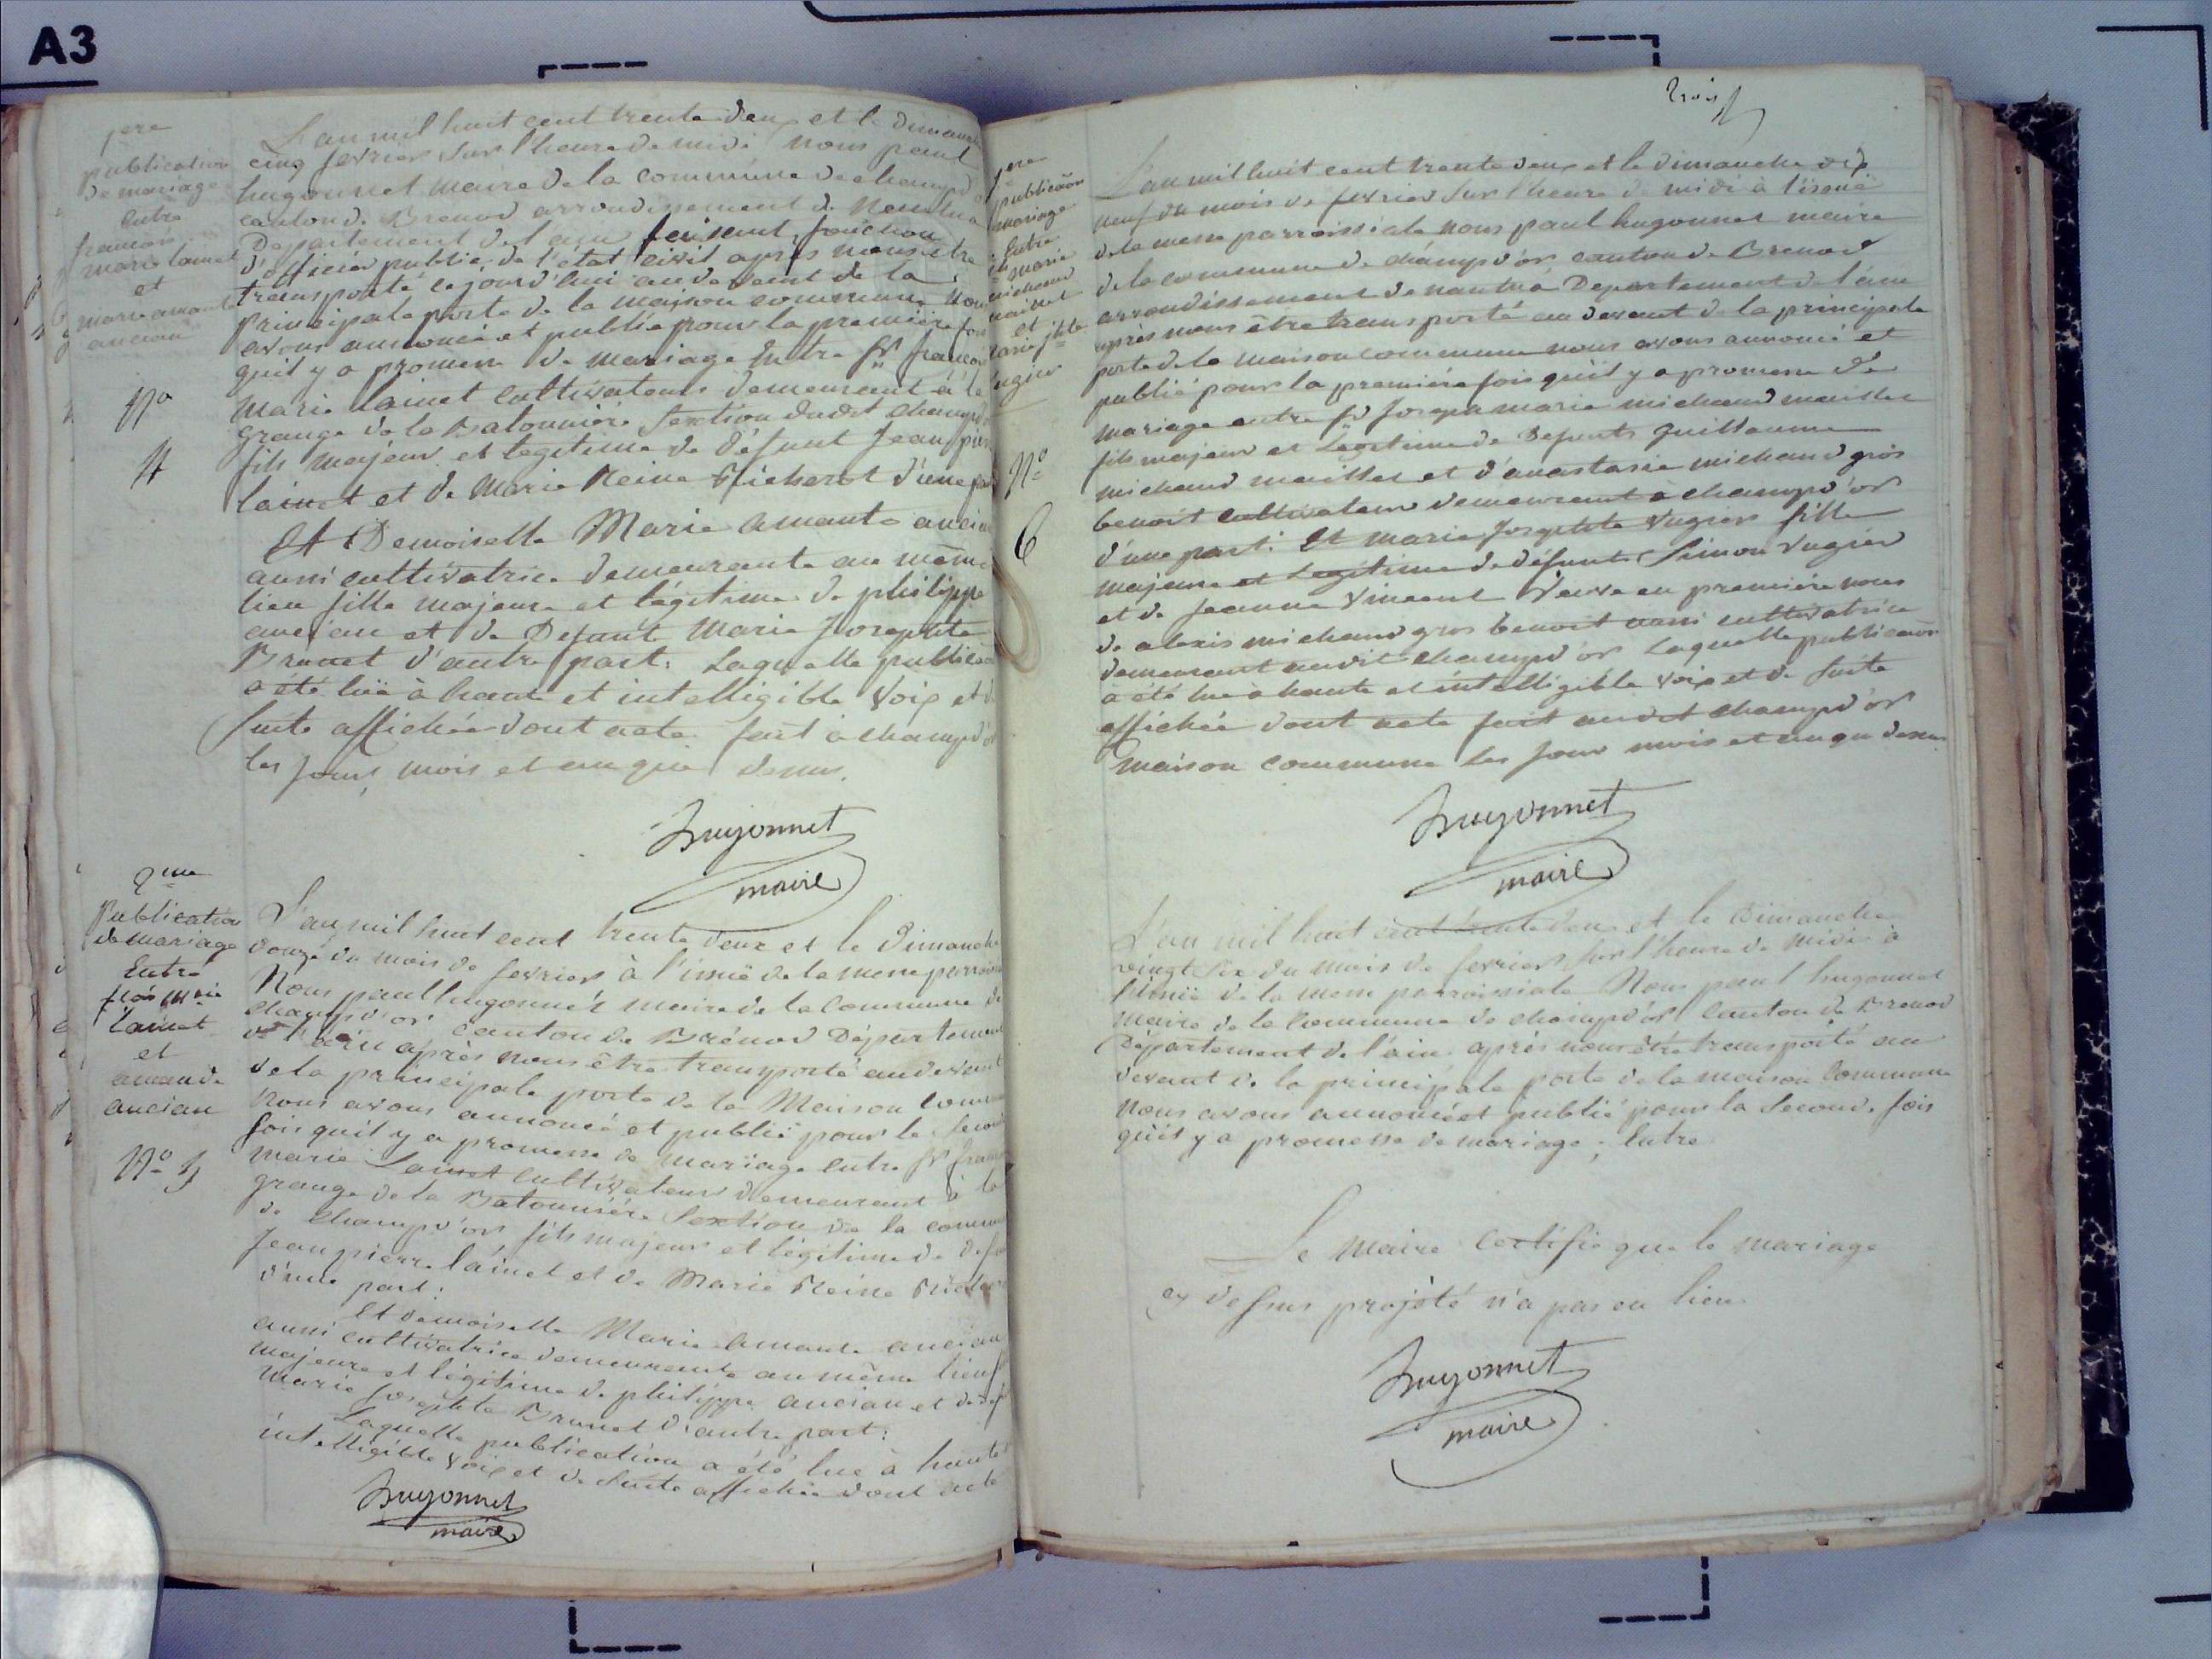 A3
1ere
publication
de mariage
Entre
francois
marie lainet
et
marie amante
ancian
No
4
L'an mil huit cent trente deux et le dimanche
cinq fevrier sur l'heure de midi nous paul
hugonnet maire de la commune de champd'or
canton de Brenod arrondissement de Nantua
Departement de l'ain feisant fonction
d'officier public de l'etat civil après nous etre
transporté cejourd'hui au devant de la
principale porte de la maison commune nous
avons annoncé et publié pour la premiere fois
quil y a promesse de mariage Entre sr francois
Marie Lainet cultivateur demeurant à la
grange de la Batonniere Section dudit champd'or
fils majeur et legitime de défunt Jean pierre
lainet et de Marie Reine Richerot d'une part
Et Demoiselle Marie amante ancian
aussi cultivatrice demeurante au même
lieu fille majeure et légitime de philippe
ancian et de Defunt Marie Josephte
Brunet d'autre part: Laquelle publication
a été luë à haute et intelligible voix et de
suite affichée dont acte fait à champd'or
les jours, mois et an que dessus.
hugonnet
maire
2me
Publication
de mariage
Entre
fcois mrie
lainet
et
amande
ancian
No 5
L'an mil huit cent trente deux et le dimanche
douze du mois de fevrier à l'issuë de la messe parroissiale
Nous paul hugonnet maire de la commune de
champd'or canton de Brénod Département
de l'ain après nous être transporté au devant
de la principale porte de la Maison commune
nous avons annoncé et publié pour la seconde
fois quil y a promesse de mariage entre sr francois
marie Lainet cultivateur demeurant à la
grange de la Batonniere Section de la commune
de champd'or, fils majeur et légitime de défunt
Jean pierre lainet et de Marie Reine Richerot
d'une part:
Et demoiselle Marie amante ancian
aussi cultivatrice demeurante au même lieu fille
majeure et légitime de philippe ancian et de défunt
Marie Josephte Brunet d'autre part:
Laquelle publication a été lue à haute
intelligible voix et de suite affichée dont acte
hugonnet
maire
trois
1ere
publication
mariage
Entre
marie
michaud
maillet
et
marie jphte
vugier
No
6
L'an mil huit cent trente deux et le dimanche dix
neuf du mois de fevrier sur l'heure de midi à l'issuë
de la messe parroissiale nous paul hugonnet maire
de la commune de champd'or canton de Brenod
arrondissement de nantua Departement de l'ain
après nous être transporté au devant de la principale
porte de la maison commune nous avons annoncé et
publié pour la premiére fois qu'il y a promesse de
mariage entre sr Joseph marie michaud maillet
fils majeur et Légitime de Defunts guillaume
michaud maillet et d'anastasie michaud gros
benoit cultivateur demeurant à champd'or
d'une part: Et marie Josephte Vugier fille
majeure et Legitime de défunts Simon Vugier
et de Jeanne Vincent Veuve en premiére nous
de alexis michaud gros benoit aussi cultivatrice
demeurant audit champd'or Laquelle publication
a été lue à haute et intelligible voix et de suite
affichée dont acte fait audit champd'or
maison commune les jour mois et an que dessus
hugonnet
maire
L'an mil huit cent trente deux et le Dimanche
vingt six du mois de fevrier sur l'heure de midi à
l'issuë de la messe parroissiale Nous paul hugonnet
maire de la Commune de champd'or canton de Brenod
Département de l'ain après nous être transporté au
devant de la principale porte de la maison Commune
Nous avons annoncé et publié pour la Seconde fois
qu'il y a promesse de mariage; Entre
Le maire certifie que le mariage
cy dessus projété n'a pas eu lieu
hugonnet
maire